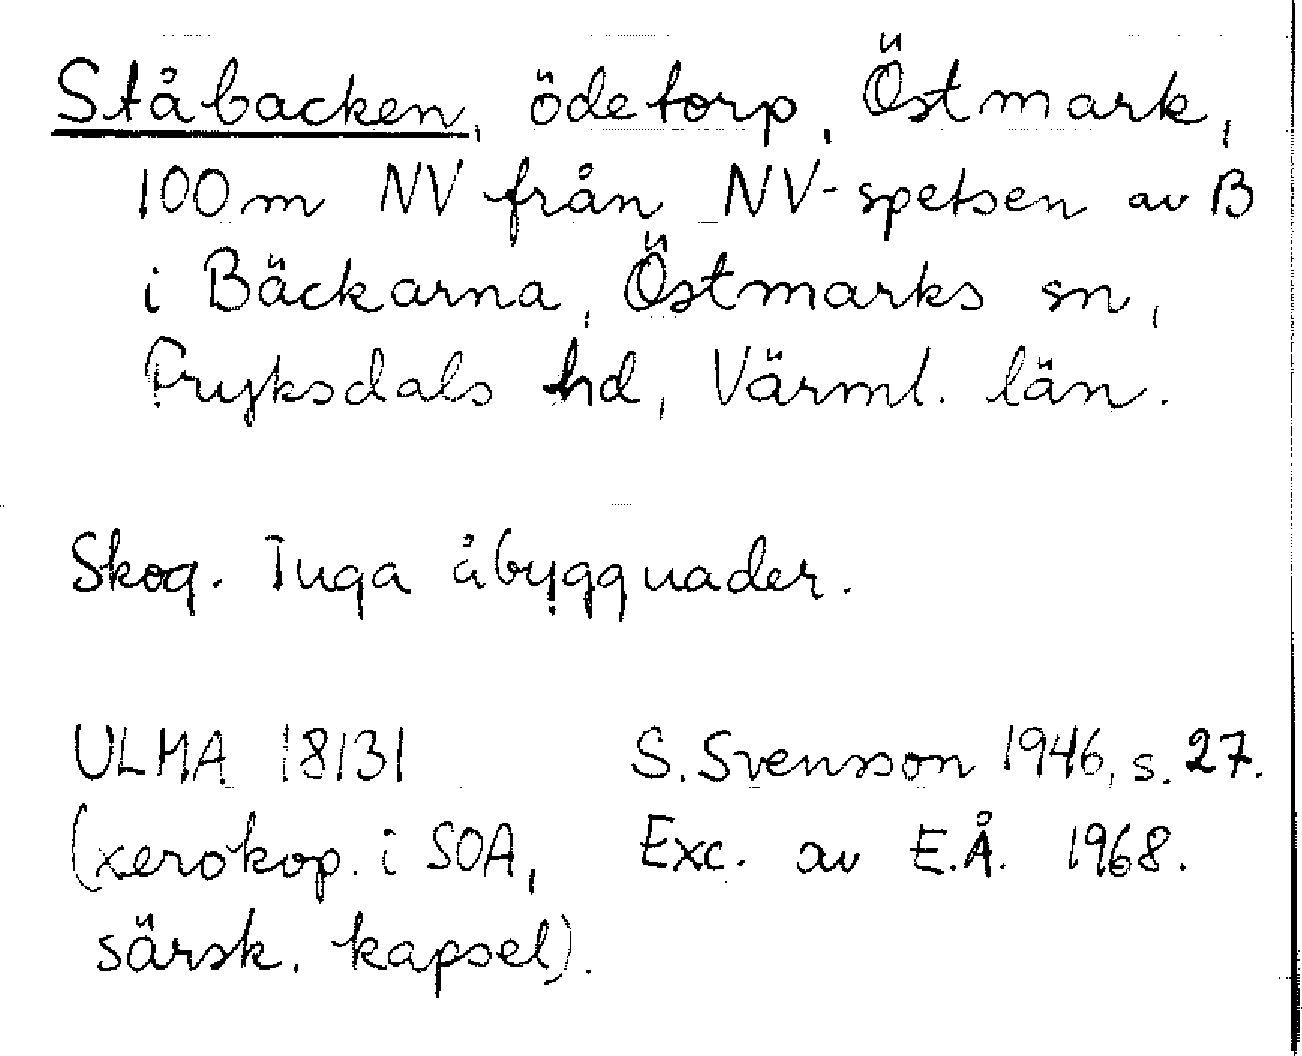 Ståbacken, ödetorp, Östmark,
100 m NV från NV-spetsen av B
i Bäckarna, Östmarks sn,
Fryksdals hd, Värml. län.
Skog. Inga åbyggnader.
ULMA 18131 S. Svensson 1946, s. 27.
(xerokop. i SOA, Exc. av E.Å. 1968.
särsk. kapsel).